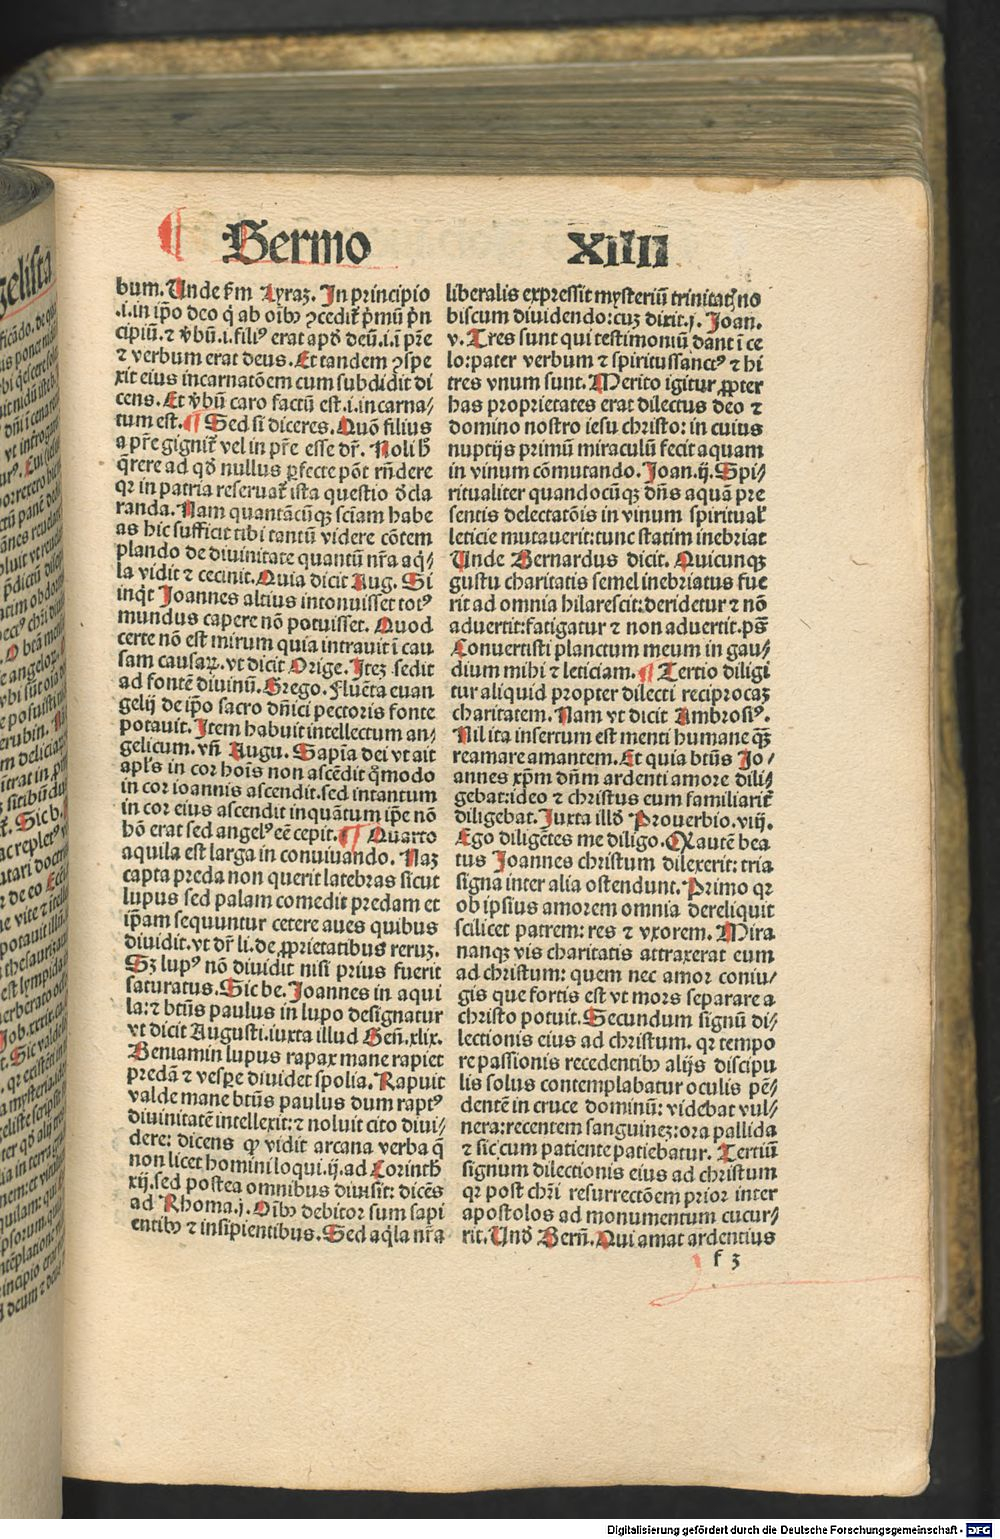 Sermo XIIII
bum. Unde ẜm Lyraz. In principio
.i. in ip̄o deo q̄ ab oibꝰ ꝓcedit p̄mū p̄n
cipiū. ⁊ v̄bū .i. filiꝰ erat apd̄ deū .i. ī pr̄e
⁊ verbum erat deus. Et tandem ꝯspe
xit eius incarnatōem cum subdidit di
cens. Et v̄bū caro factū est .i. incarna⸗
tum est. ¶ Sed si diceres. Quō filius
a pr̄e gignit̄ vel in pr̄e esse dr̄. Noli h̄
q̄rere ad qd̄ nullus ꝑfecte pōt rn̄dere
qꝛ in patria reseruat̄ ista questio d̄cla
randa. Nam quantācūqꝫ sciam habe
as hic sufficit tibi tantū videre cōtem
plando de diuinitate quantū nr̄a aq̄⸗
la vidit ⁊ cecinit. Quia dicit Aug. Si
inqt̄ Joannes altius intonuisset totꝰ
mundus capere nō potuisset. Quod
certe nō est mirum quia intrauit ī cau
sam causaꝝ. vt dicit Orige. Itez sedit
ad fontē diuinū. Grego. Fluēta euan
gelij de ip̄o sacro dn̄ici pectoris fonte
potauit. Item habuit intellectum an⸗
gelicum. vn̄ Augu. Sapīa dei vt ait
apl's in cor hoīs non ascēdit q̊modo
in cor ioannis ascendit. sed intantum
in cor eius ascendit inquātum ip̄e nō
hō erat sed angelꝰ eē cepit. ¶ Quarto
aquila est larga in conuiuando. Naz
capta preda non querit latebras sicut
lupus sed palam comedit predam et
ip̄am sequuntur cetere aues quibus
diuidit. vt dr̄ li. de ꝓprietatibus reruz.
Sz lupꝰ nō diuidit nisi prius fuerit
saturatus. Sic be. Joannes in aqui
la: ⁊ btūs paulus in lupo designatur
vt dicit Augusti. iuxta illud Gen̄. xlix.
Beniamin lupus rapax mane rapiet
predā ⁊ vespe diuidet spolia. Rapuit
valde mane btūs paulus dum raptꝰ
diuinitatē intellexit: ⁊ noluit cito diui⸗
dere: dicens ꝙ vidit arcana verba q̄
non licet homini loqui. ij. ad Corinth
xij. sed postea omnibus diuisit: dicēs
ad Rhoma. j. Oībꝰ debitor sum sapi
entibꝰ ⁊ insipientibus. Sed aq̄la nr̄a
liberalis expressit mysteriū trinitatꝭ no
biscum diuidendo: cuz dixit. j. Joan.
v. Tres sunt qui testimoniū dant ī ce
lo: pater verbum ⁊ spiritussanctꝰ ⁊ hi
tres vnum sunt. Merito igitur ꝓpter
has proprietates erat dilectus deo ⁊
domino nostro iesu christo: in cuius
nuptijs primū miraculū fecit aquam
in vinum cōmutando. Joan. ij. Spi⸗
ritualiter quandocūqꝫ dn̄s aquā pre
sentis delectatōis in vinum spiritual̄
leticie mutauerit: tunc statim inebriat
Unde Bernardus dicit. Quicunqꝫ
gustu charitatis semel inebriatus fue
rit ad omnia hilarescit: deridetur ⁊ nō
aduertit: fatigatur ⁊ non aduertit. ps̄
Conuertisti planctum meum in gau⸗
dium mihi ⁊ leticiam. ¶ Tertio diligi
tur aliquid propter dilecti reciprocaz
charitatem. Nam vt dicit Ambrosiꝰ.
Nil ita insertum est menti humane qꝫ̄
reamare amantem. Et quia btūs Jo⸗
annes xp̄m dn̄m ardenti amore dili⸗
gebat: ideo ⁊ christus eum familiarit̄
diligebat. Juxta illd̄ Prouerbio. viij.
Ego diligētes me diligo. Qꝫ autē bea
tus Joannes christum dilexerit: tria
signa inter alia ostendunt. Primo qꝛ
ob ipsius amorem omnia dereliquit
scilicet patrem: res ⁊ vxorem. Mira
nanqꝫ vis charitatis attraxerat eum
ad christum: quem nec amor coniu⸗
gis que fortis est vt mors separare a
christo potuit. Secundum signū di⸗
lectionis eius ad christum. qꝛ tempo
re passionis recedentibꝰ alijs discipu
lis solus contemplabatur oculis pē⸗
dentē in cruce dominū: videbat vul⸗
nera: recentem sanguinez: ora pallida
⁊ sic cum patiente patiebatur. Tertiū
signum dilectionis eius ad christum
qꝛ post chr̄i resurrectōem prior inter
apostolos ad monumentum cucur⸗
rit. Und̄ Bern̄. Qui amat ardentius
f 3
Digitalisierung gefördert durch die Deutsche Forschungsgemeinschaft - DFG